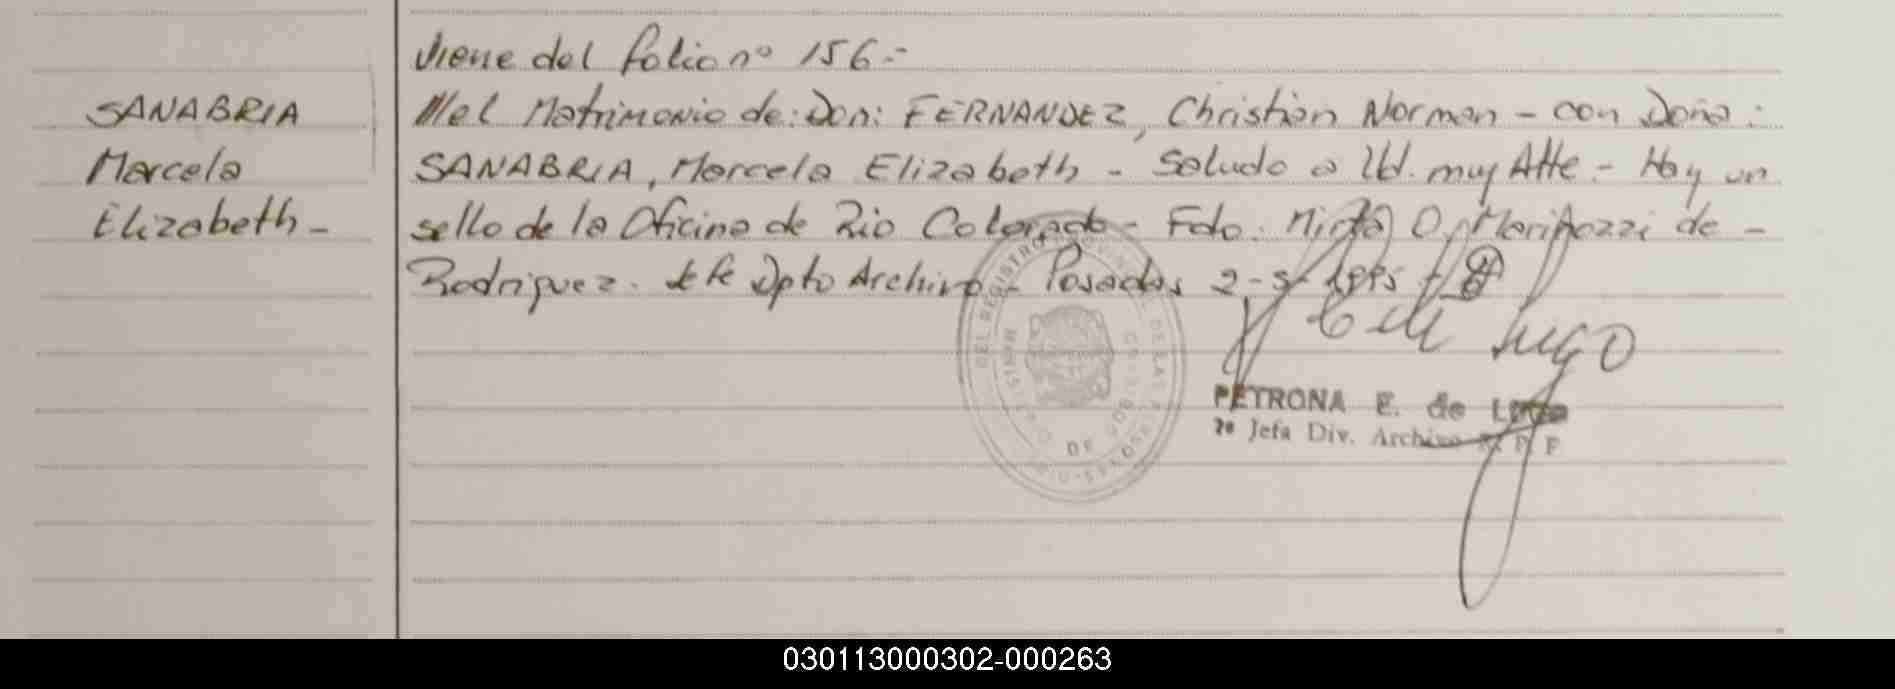 Viene del folio nº 156.-
SANABRIA
Marcela
Elizabeth -
///del Matrimonio de: Don: FERNANDEZ, Christian Norman - con Doña:
SANABRIA, Marcela Elizabeth - Saludo a Ud. muy Atte - Hay un
sello de la Oficina de Rio Colorado - Fdo. Mirta O. de -
Rodriguez. Jefe Dpto Archivo - Posadas
PETRONA E. de Lugo
2ª Jefa Div. Archivo R. P. P
DEL REGISTRO
DE LAS PERSONAS
030113000302-000263